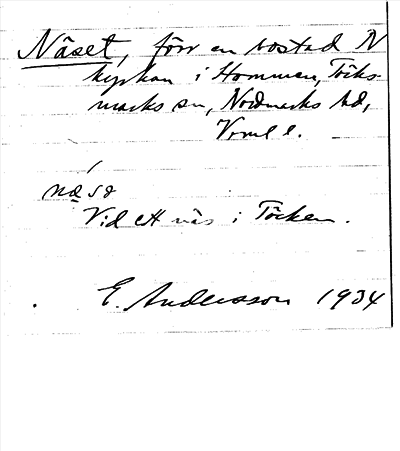 Näset, förr en bostad N
kyrkan i Hommen, Töcks-
marks sn, Nordmarks hd,
Vrml l.
næ´sə
Vid ett näs i Töcken.
E. Andersson 1934